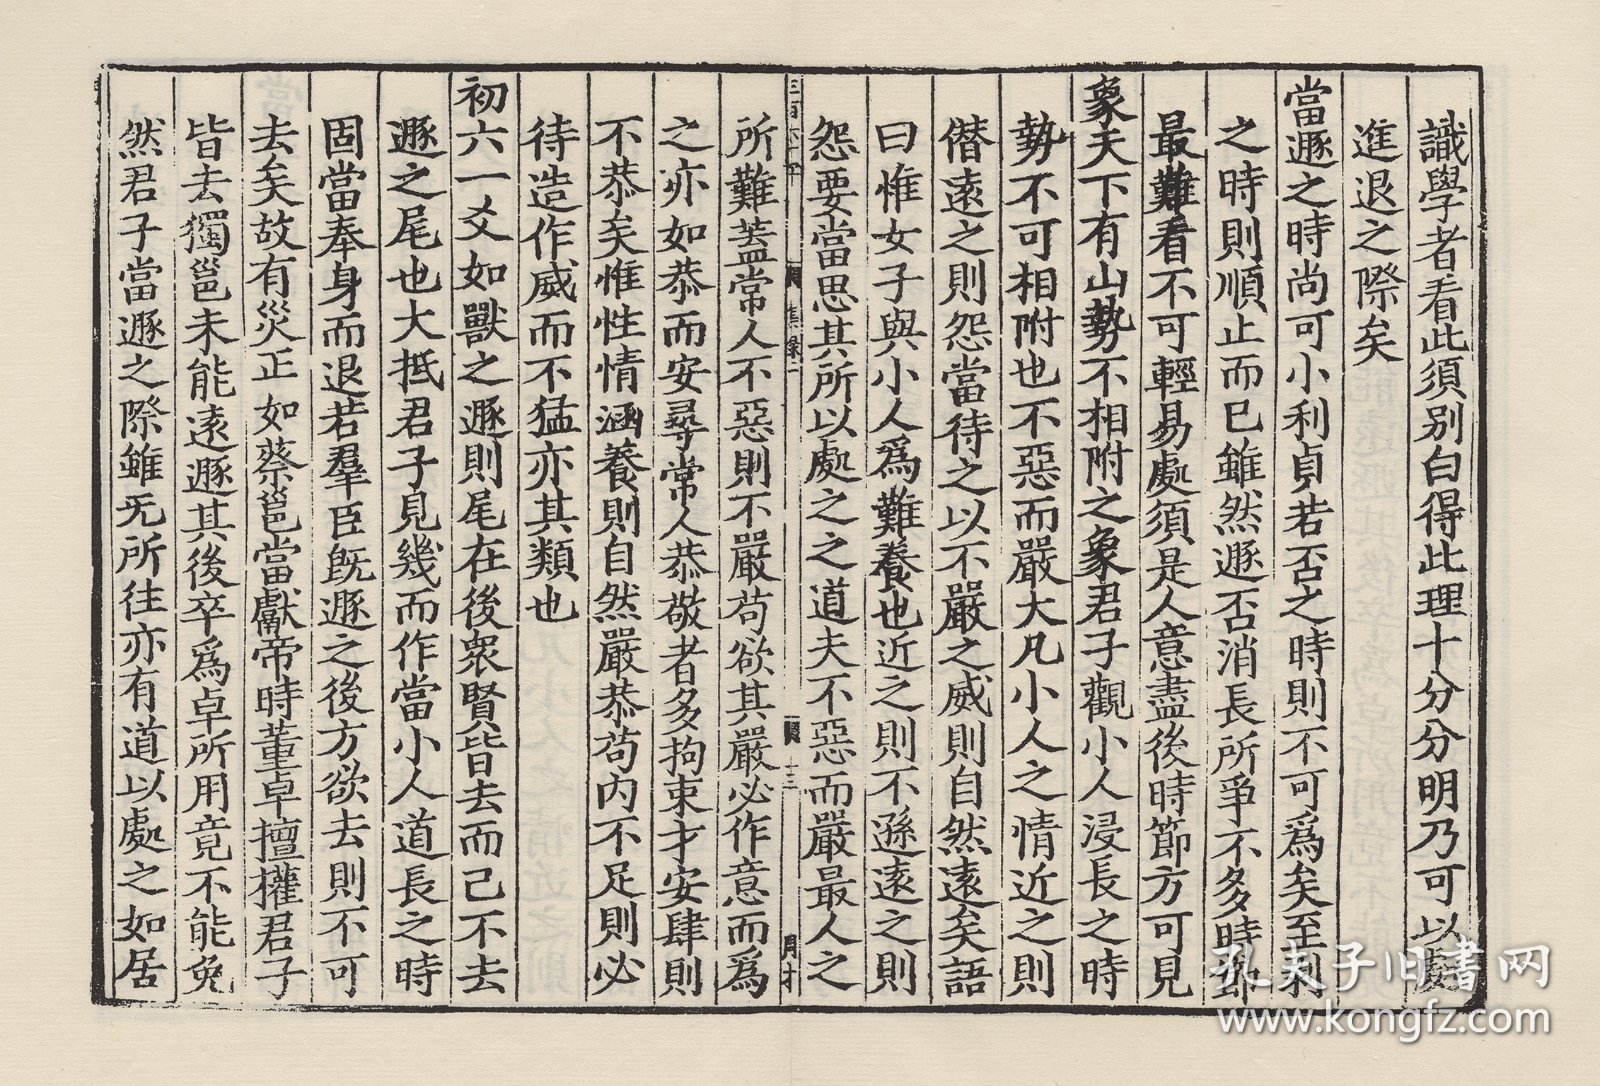 識學者看此須别白得此理十分分明乃可以處
進退之際矣
當遯之時尚可小利貞若否之時則不可爲矣至剥
之時則順止而已雖然遯否消長所爭不多時節
最難看不可輕易處須是人意盡後時節方可見
象天下有山勢不相附之象君子觀小人浸長之時
勢不可相附也不惡而嚴大凡小人之情近之則
僣遠之則怨當待之以不嚴之威則自然遠矣語
曰惟女子與小人爲難養也近之則不遜遠之則
怨要當思其所以處之之道夫不惡而嚴最人之
三百六十
集录二
十三
所難蓋常人不惡則不嚴苟欲其嚴必作意而爲
之亦如恭而安尋常人恭敬者多拘束才安肆則
不恭矣惟性情涵養則自然嚴恭苟内不足則必
待造作威而不猛亦其類也
初六一爻如獸之遯則尾在後衆賢皆去而己不去
遯之尾也大抵君子見幾而作當小人道長之時
固當奉身而退若羣臣既遯之後方欲去則不可
去矣故有災正如蔡邕當獻帝時董卓擅權君子
皆去獨邕未能遠遯其後卒爲卓所用竟不能免
然君子當遯之際雖无所往亦有道以處之如居
孔夫子旧书网
www.kongfz.com